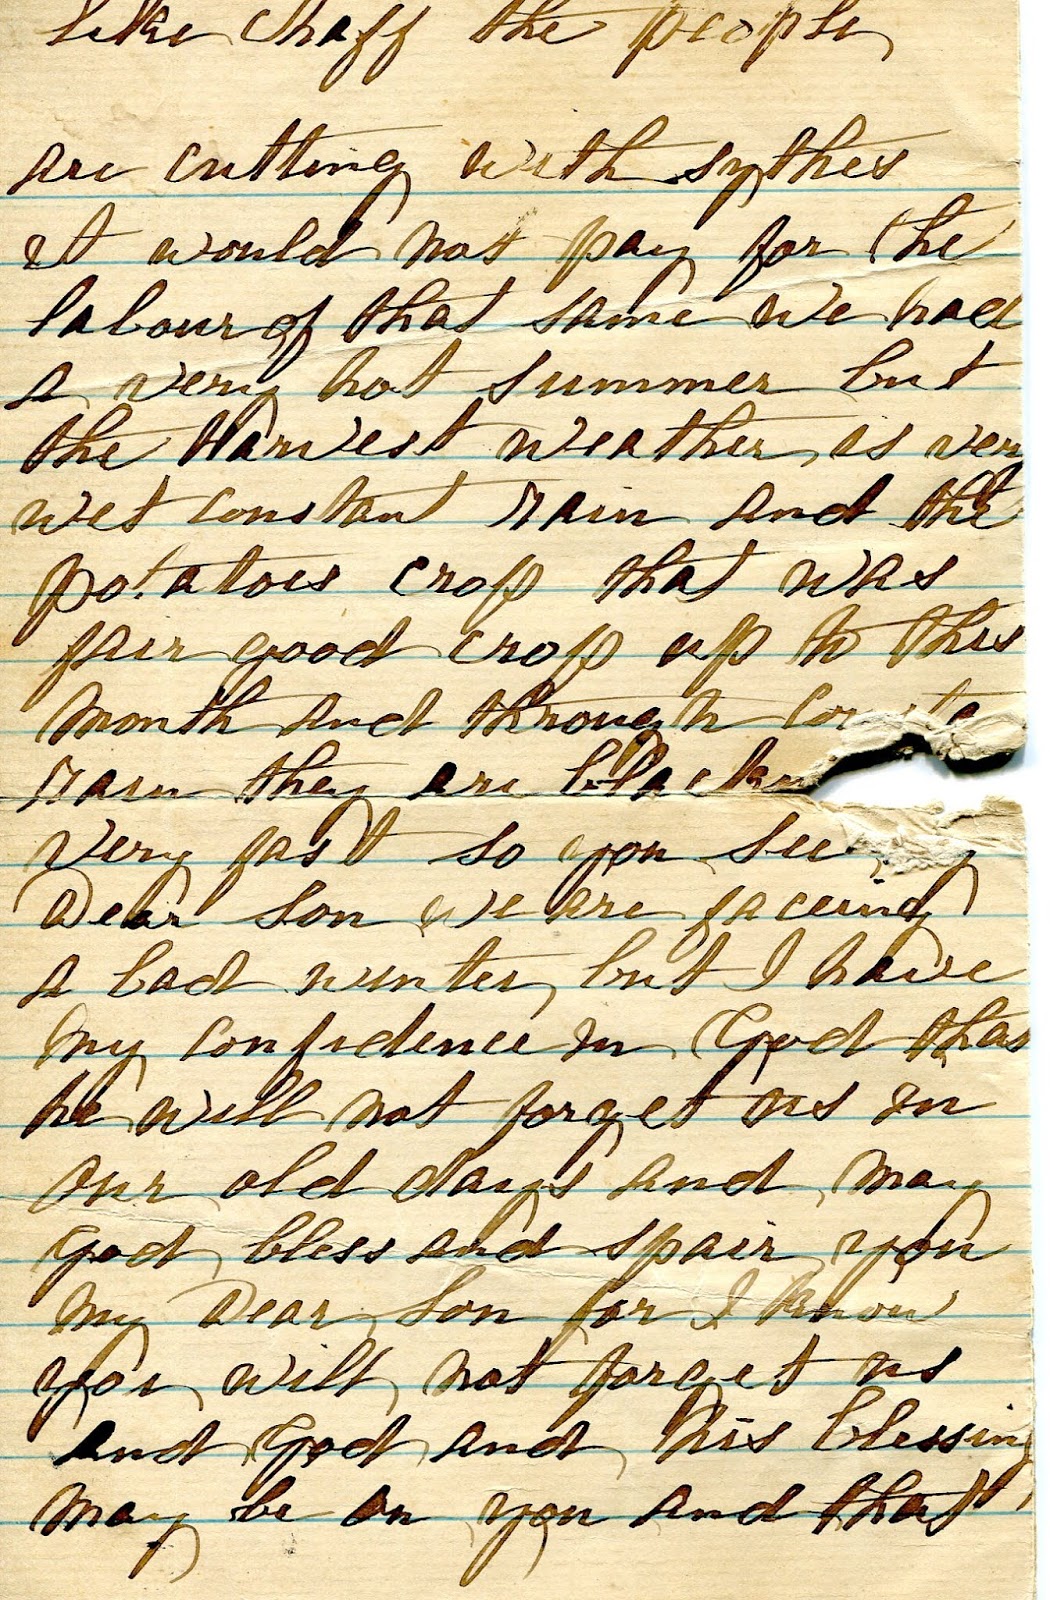 like chaff the people
are cutting with sythes
it would not pay for the
labour of that same we had
a very hot summer but
the Harvest weather is very
wet constant rain and the
potatoes crop that was
fair good crop up to this
month and through
rain they are
very fast so you see my
Dear Son we are faceing
a bad winter but I have
my confidence in God that
he will not forget us in
our old days and may
God bless and spair you
my Dear Son for I know
you will not forget us
and God and his blessing
may be on you and that